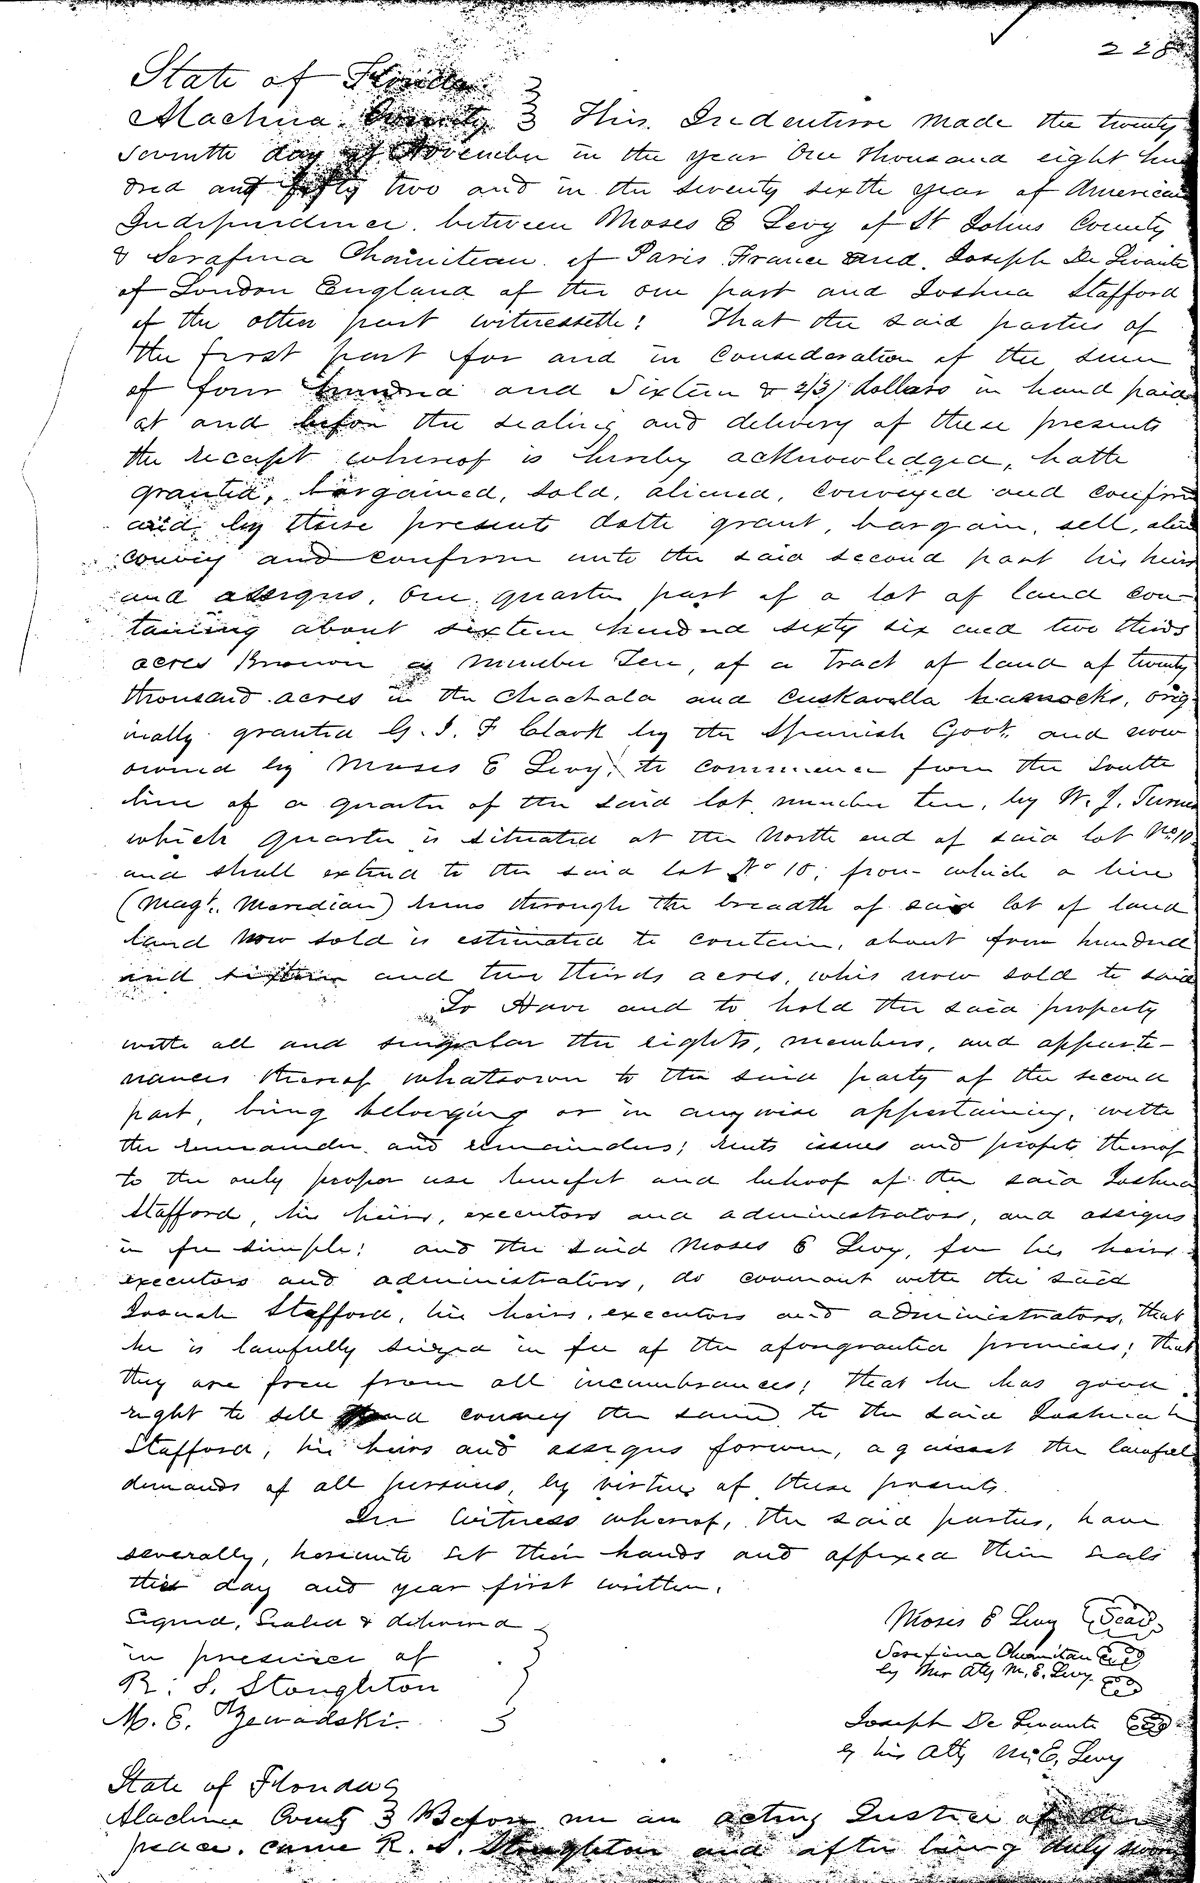 228
State of Florida
Alachua County } This Indenture made the twenty
seventh day of November in the year One thousand eight hun
dred and fifty two and in the seventy sixth year of American
Independence between Moses E Levy of St Johns County
& Serafina Chauviteau of Paris France and Joseph De Livante
of London England of the one part and Joshua Stafford
of the other part witnesseth: That the said parties of
the first part for and in consideration of the sum
of four hundred and Sixteen & 2/3/ dollars in hand paid
at and before the sealing and delivery of these presents
the receipt whereof is hereby acknowledged, hath
granted, bargained, sold, aliened, conveyed and confirmd
and by these presents doth grant, bargain, sell, alien
convey and confirm unto the said second part his heirs
and assigns, One quarter part of a lot of land con-
taining about sixteen hundred sixty six and two thirds
acres Known as number Ten, of a tract of land of twenty
thousand acres in the Chachala and Cuskavilla hamocks, orig
inally granted G. I. F Clark by the Spanish Govt. and now
owned by Moses E Levy, to commence from the South
line of a quarter of the said lot number ten, by W. J. Turner
which quarter is situated at the North end of said lot No. 10
and shall extend to the said lot No 10; from which a line
(Magt. Meridian) runs through the breadth of said lot of land
land now sold is estimated to contain, about four hundred
and sixteen and two thirds acres, whis now sold to said
To Have and to hold the said property
with all and singular the rights, members, and appurte-
nances thereof whatsoever to the said party of the second
part, being belonging or in anywise appertaining, with
the remainder and remainders; rents issues and profits thereof
to the only proper use benefit and behoof of the said Joshua
Stafford, his heirs, executors and administrators, and assigns
in fee simple: and the said Moses E Levy, for his heirs
executors and administrators, do covenant with the said
Josuah Stafford, his heirs, executors and administrators, that
he is lawfully seized in fee of the aforegranted premises; that
they are free from all incumbrances; that he has good
right to sell and convey the same to the said Joshua
Stafford, his heirs and assigns forever, against the lawful
demands of all persons, by virtue of these presents.
In Witness whereof, the said parties, have
severally, hereunto set their hands and affixed their seals
the day and year first written.
Signed, Sealed & delivered
in presence of
R. S. Stoughton
M. E. Rzewadski
Moses E Levy (Seal)
Serefina Chauvitau
by Her Atty M. E. Levy
Joseph De Livante
by his Atty M. E. Levy
State of Florida
Alachua County } Before me an acting Justice of the
peace. came R. S. Stoughton and after being duly sworn